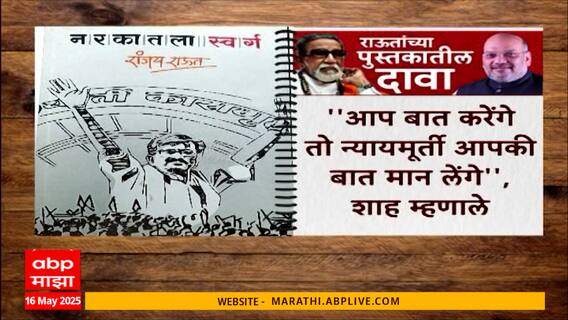 नरकातला स्वर्ग
संजय राऊत
राऊतांच्या
पुस्तकातील
दावा
''आप बात करेंगे
तो न्यायमूर्ती आपकी
बात मान लेंगे'',
शाह म्हणाले
abp
माझा
16 May 2025
WEBSITE - MARATHI.ABPLIVE.COM